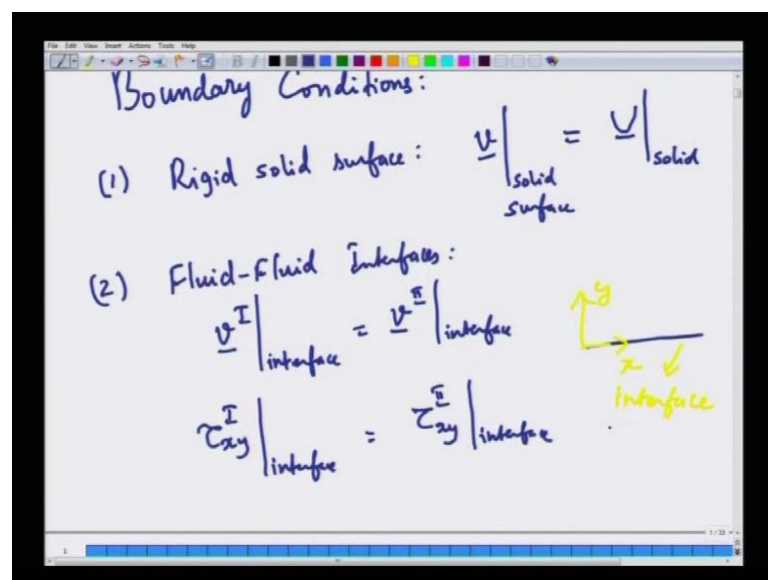 File Edit View Insert Actions Tools Help
Boundary Conditions:
(1) Rigid solid surface: v|solid surface = V|solid
(2) Fluid-Fluid Interfaces:
v^I|interface = v^II|interface
y
x
interface
τ^I_xy|interface = τ^II_xy|interface
1/33
1